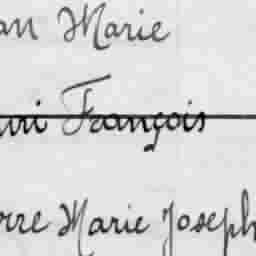 an Marie
nri François
rre Marie Joseph